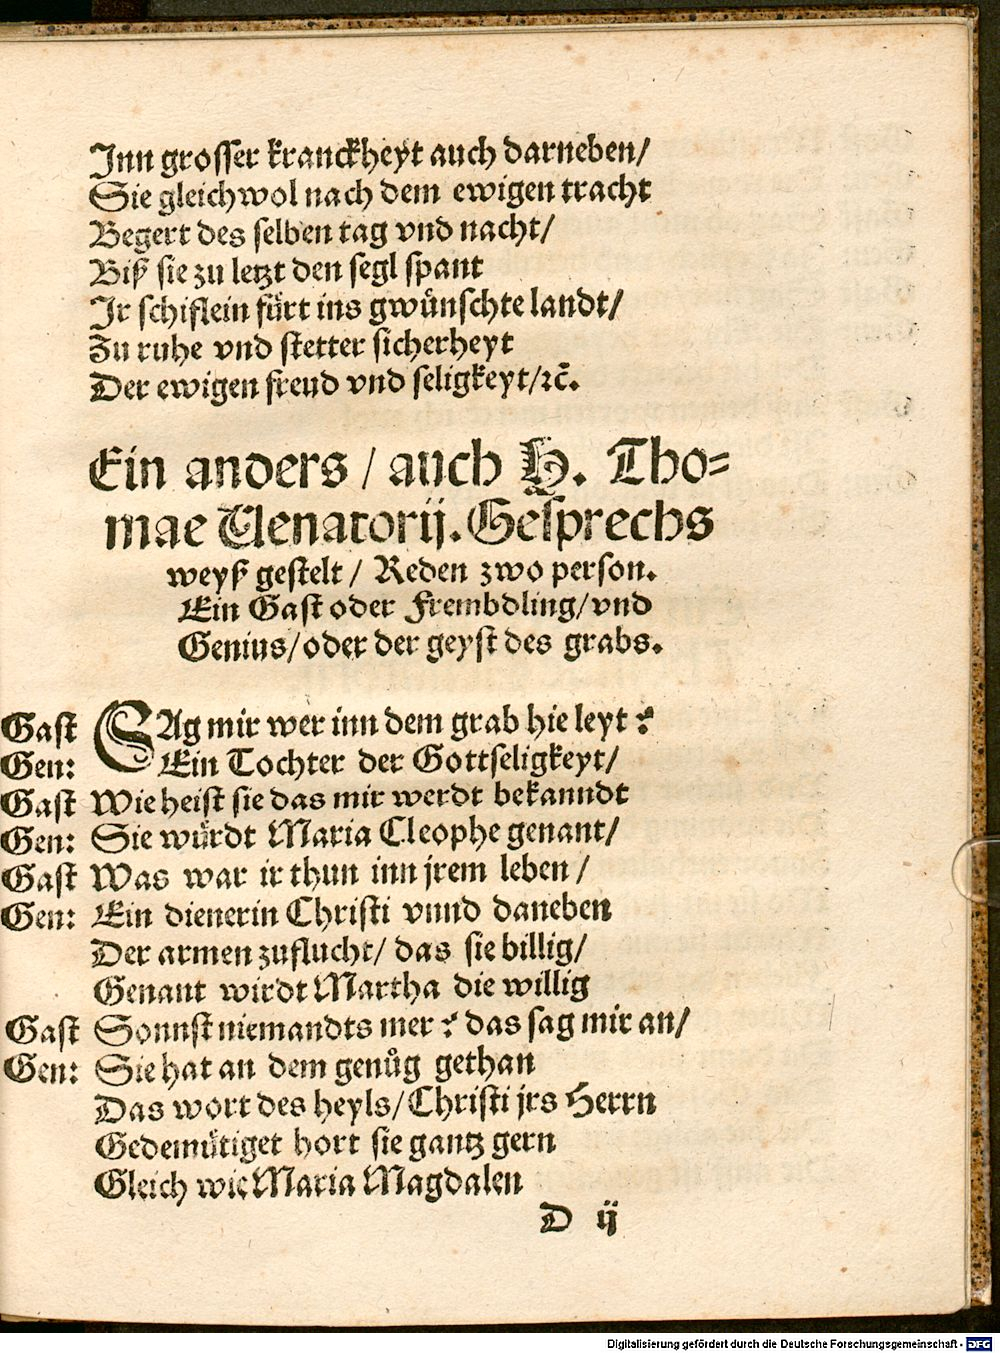 Inn grosser kranckheyt auch darneben/
Sie gleichwol nach dem ewigen tracht
Begert des selben tag vnd nacht/
Biß sie zu letzt den segl spant
Ir schiflein fürt ins gwünschte landt/
Zu ruhe vnd stetter sicherheyt
Der ewigen freud vnd seligkeyt/ꝛc̄.
Ein anders / auch H. Tho-
mae Venatorij. Gesprechs
weyß gestelt / Reden zwo person.
Ein Gast oder Frembdling/vnd
Genius/oder der geyst des grabs.
Gast SAg mir wer inn dem grab hie leyt?
Gen: Ein Tochter der Gottseligkeyt/
Gast Wie heist sie das mir werdt bekanndt
Gen: Sie würdt Maria Cleophe genant/
Gast Was war ir thun inn jrem leben /
Gen: Ein dienerin Christi vnnd daneben
Der armen zuflucht/ das sie billig/
Genant wirdt Martha die willig
Gast Sonnst niemandts mer? das sag mir an/
Gen: Sie hat an dem genůg gethan
Das wort des heyls/Christi jrs Herrn
Gedemütiget hort sie gantz gern
Gleich wie Maria Magdalen
D ij
Digitalisierung gefördert durch die Deutsche Forschungsgemeinschaft - DFG